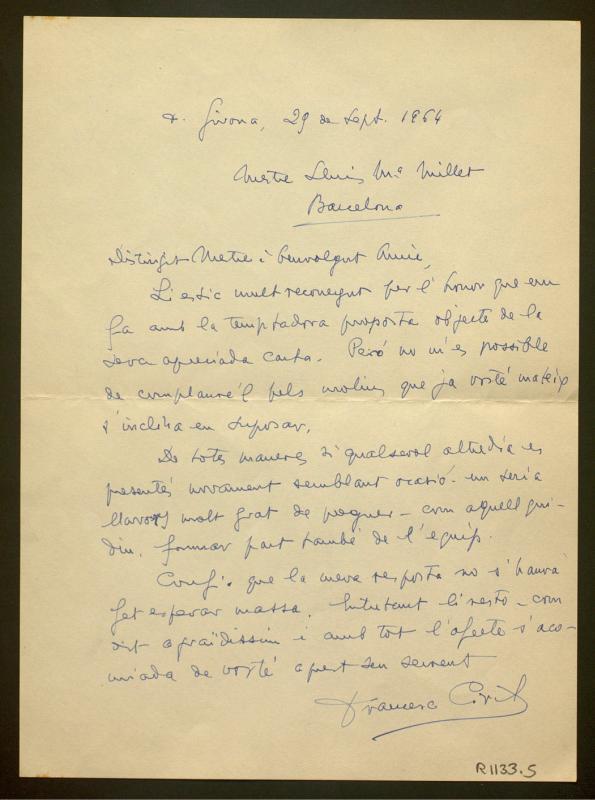 +. Girona, 29 de Sept. 1964
Mestre Lluis Mª Millet
Barcelona
Distingit Mestre i benvolgut Amic,
Li estic molt reconegut per l'honor que em
fa amb la temptadora proposta objecte de la
seva apreciada carta. Peró no m'es possible
de complaure'l pels motius que ja vosté mateix
s'inclina en suposar.
De totes maneres si qualsevol altre dia es
presentés novament semblant ocasió - em seria
llavors molt grat de poguer - com aquell qui -
diu. formar part també de l'equip.
Confio que la meva resposta no s'haurà
fet esperar massa. Entretant li resto - com
dit agraïdissim i amb tot l'afecte s'aco-
miada de vosté aquest seu servent
Francesc Civil
R1133.5